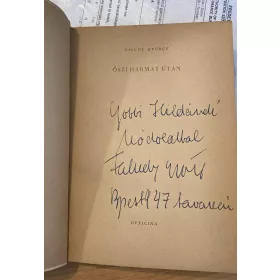 FALUDY GYÖRGY
ŐSZI HARMAT UTÁN
Gobbi Hildának
hódolattal
Faludy György
Bpest 947 tavaszán
OFFICINA